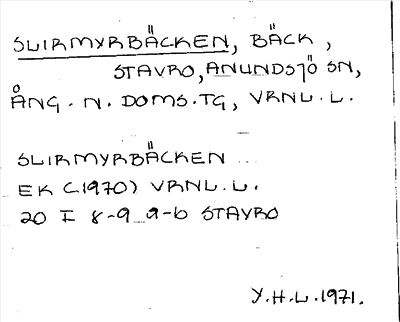 SLIRMYRBÄCKEN, BÄCK,
STAVRO, ANUNDSJÖ SN,
ÅNG. N. DOMS. TG, VRNL. L.
SLIRMYRBÄCKEN
EK (1970) VRNL. L.
20 I 8-9 a-b STAVRO
Y.H.L. 1971.